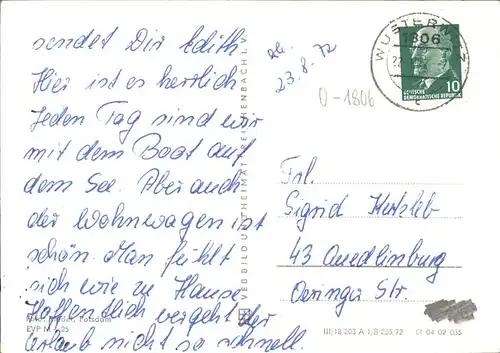 sendet Dir Edith.
Hier ist es herrlich
Jeden Tag sind wir
mit dem Boot auf
dem See. Aber auch
der Wohnwagen ist
schön. Man fühlt
sich wie zu Hause.
Hoffentlich vergeht der
Urlaub nicht so schnell.
23.8.72
O-1806
WUSTERWITZ
1806
10
DEUTSCHE
DEMOKRATISCHE REPUBLIK
Frl.
Sigrid
43 Quedlinburg
Oeringer Str.
VEB BILD UND HEIMAT REICHENBACH I. V.
Potsdam
EVP M
III/18/203 A 1/B 235/72
01 04 02 035